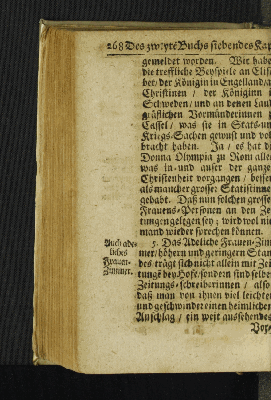 268 Des zweyte Buchs siebendes Kap
gemeldet worden. Wir habe
die treffliche Beyspiele an Elis
bet/ der Königin in Engelland/ a
Christinen / der Königinn i
Schweden/ und an denen Lan
gräflichen Vormünderinnen
Cassel / was sie in Stats-un
Kriegs-Sachen gewust und vol
bracht haben. Ja / es hat di
Donna Olympia zu Rom alle
was in-und ausser der ganze
Christenheit vorgangen / besse
als mancher grosser Statistinne
gehabt. Daß nun solchen grosse
Frauens-Personen an den Ze
tungen gelegen sey; wird wol nie
mand wieder sprechen können.
Auch ade-
liches
Frauen-
Zimmer.
5. Das Adeliche Frauen-Zim
mer/ höhern und geringern Stan
des trägt sich nicht allein mit Zei
tungs bey Hofe/ sondern sind selbe
Zeitungs-schreiberinnen / also
daß man von ihnen viel leichter
und geschwinder einen heimlichen
Anschlag / ein weit aussehendes